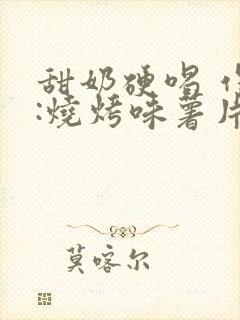 甜奶硬唱
:燒烤味薯片
莫喀尔